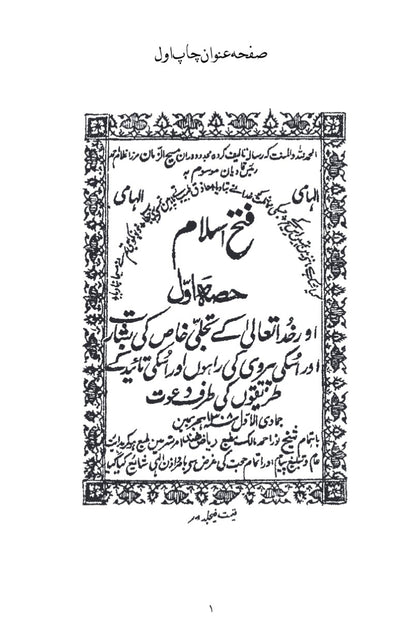 صفحہ عنوان چاپ اول
الحمد للہ والمنت کہ رسالہ تالیف کردہ مجدد دوران مسیح الزمان مرزا غلام احمد
رئیس قادیان موسوم بہ
الہامی
الہامی
فتح اسلام
حصہ اوّل
اور خدا تعالیٰ کے تجلی خاص کی بشارت
اور اسکی پیروی کی راہوں اور اسکی تائید کے
طریقوں کی طرف دعوت
جمادی الاول ۱۳۰۸ ہجری میں
باہتمام شیخ نور احمد مالک مطبع ریاض ہند امرتسر میں طبع ہو کر ہدایت
عام و تبلیغ پیام اور اتمام حجت کی غرض سے باخراذن الٰہی شائع کیا گیا
قیمت فیجلد
۱